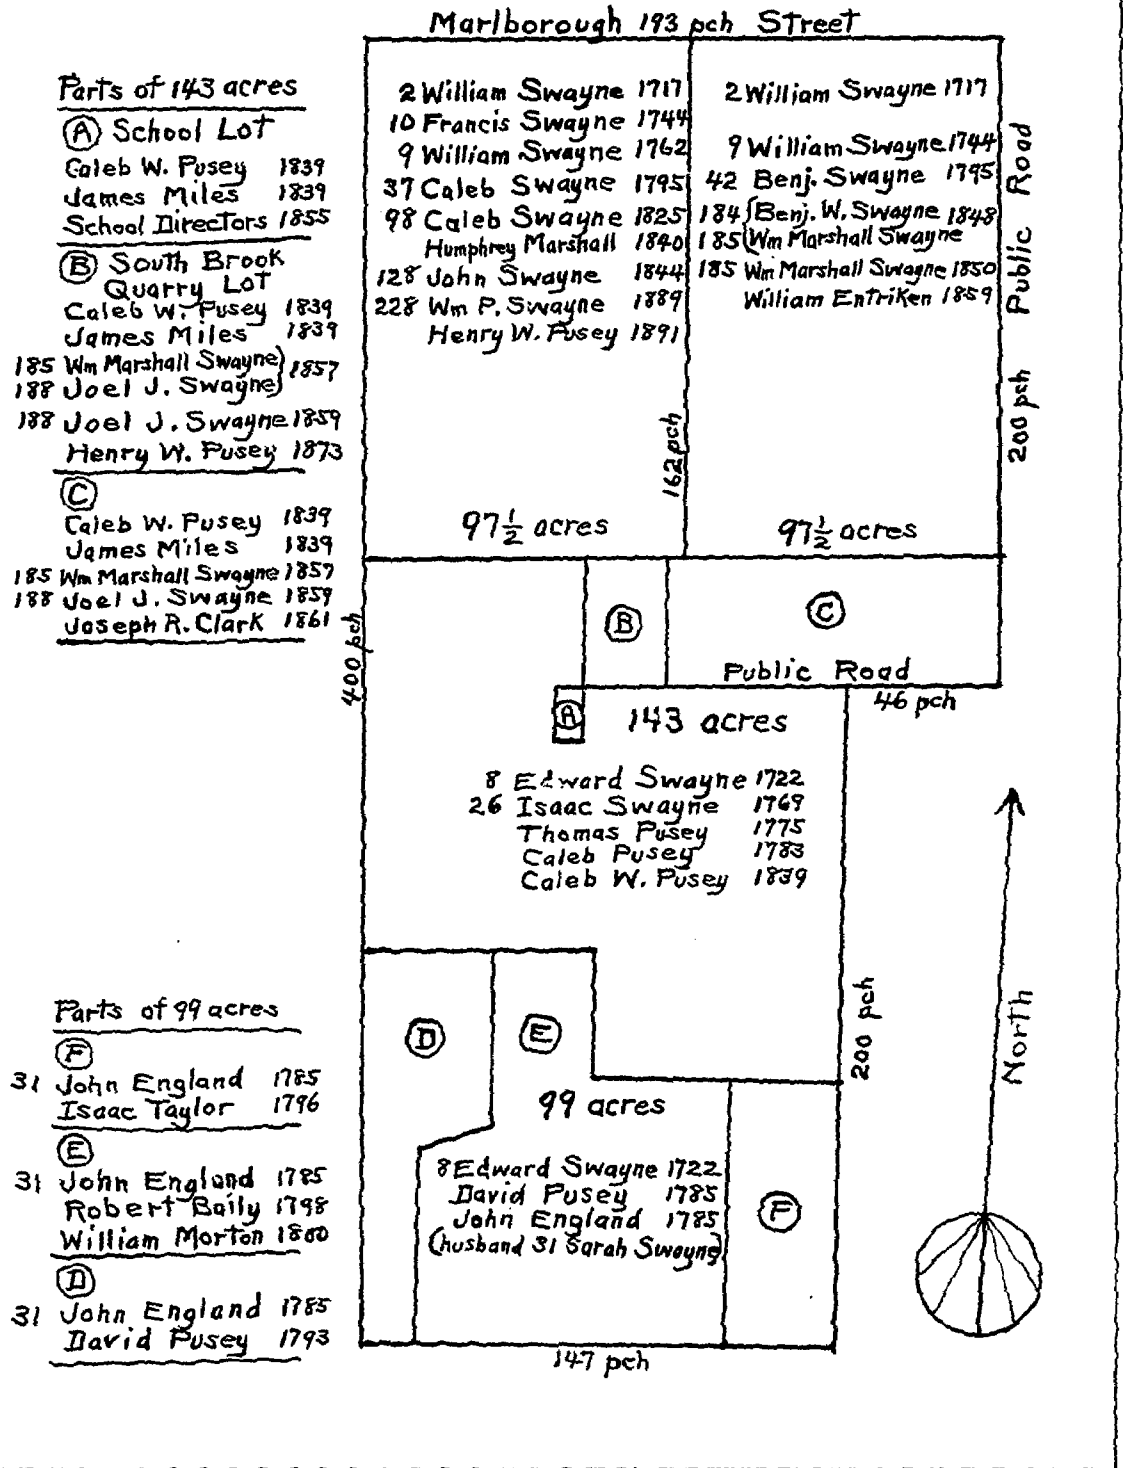 Marlborough 193 pch Street
Parts of 143 acres
Ⓐ School Lot
Caleb W. Pusey 1839
James Miles 1839
School Directors 1855
Ⓑ South Brook
Quarry Lot
Caleb W. Pusey 1839
James Miles 1839
185 Wm Marshall Swayne} 1857
188 Joel J. Swayne}
188 Joel J. Swayne 1859
Henry W. Pusey 1873
Ⓒ
Caleb W. Pusey 1839
James Miles 1839
185 Wm Marshall Swayne 1857
188 Joel J. Swayne 1859
Joseph R. Clark 1861
2 William Swayne 1717
10 Francis Swayne 1744
9 William Swayne 1762
37 Caleb Swayne 1795
98 Caleb Swayne 1825
Humphrey Marshall 1840
128 John Swayne 1844
228 Wm P. Swayne 1889
Henry W. Pusey 1891
162 pch
97½ acres
2 William Swayne 1717
9 William Swayne 1744
42 Benj. Swayne 1795
184 {Benj. W. Swayne 1848
185 {Wm Marshall Swayne
185 Wm Marshall Swayne 1850
William Entriken 1859
97½ acres
Public Road
200 pch
400 pch
Ⓑ
Ⓒ
Public Road
46 pch
Ⓐ
143 acres
8 Edward Swayne 1722
26 Isaac Swayne 1769
Thomas Pusey 1775
Caleb Pusey 1783
Caleb W. Pusey 1839
200 pch
North
Parts of 99 acres
Ⓕ
31 John England 1785
Isaac Taylor 1796
Ⓔ
31 John England 1785
Robert Baily 1798
William Morton 1800
Ⓓ
31 John England 1785
David Pusey 1793
Ⓓ
Ⓔ
99 acres
8 Edward Swayne 1722
David Pusey 1785
John England 1785
(husband 31 Sarah Swayne)
Ⓕ
147 pch